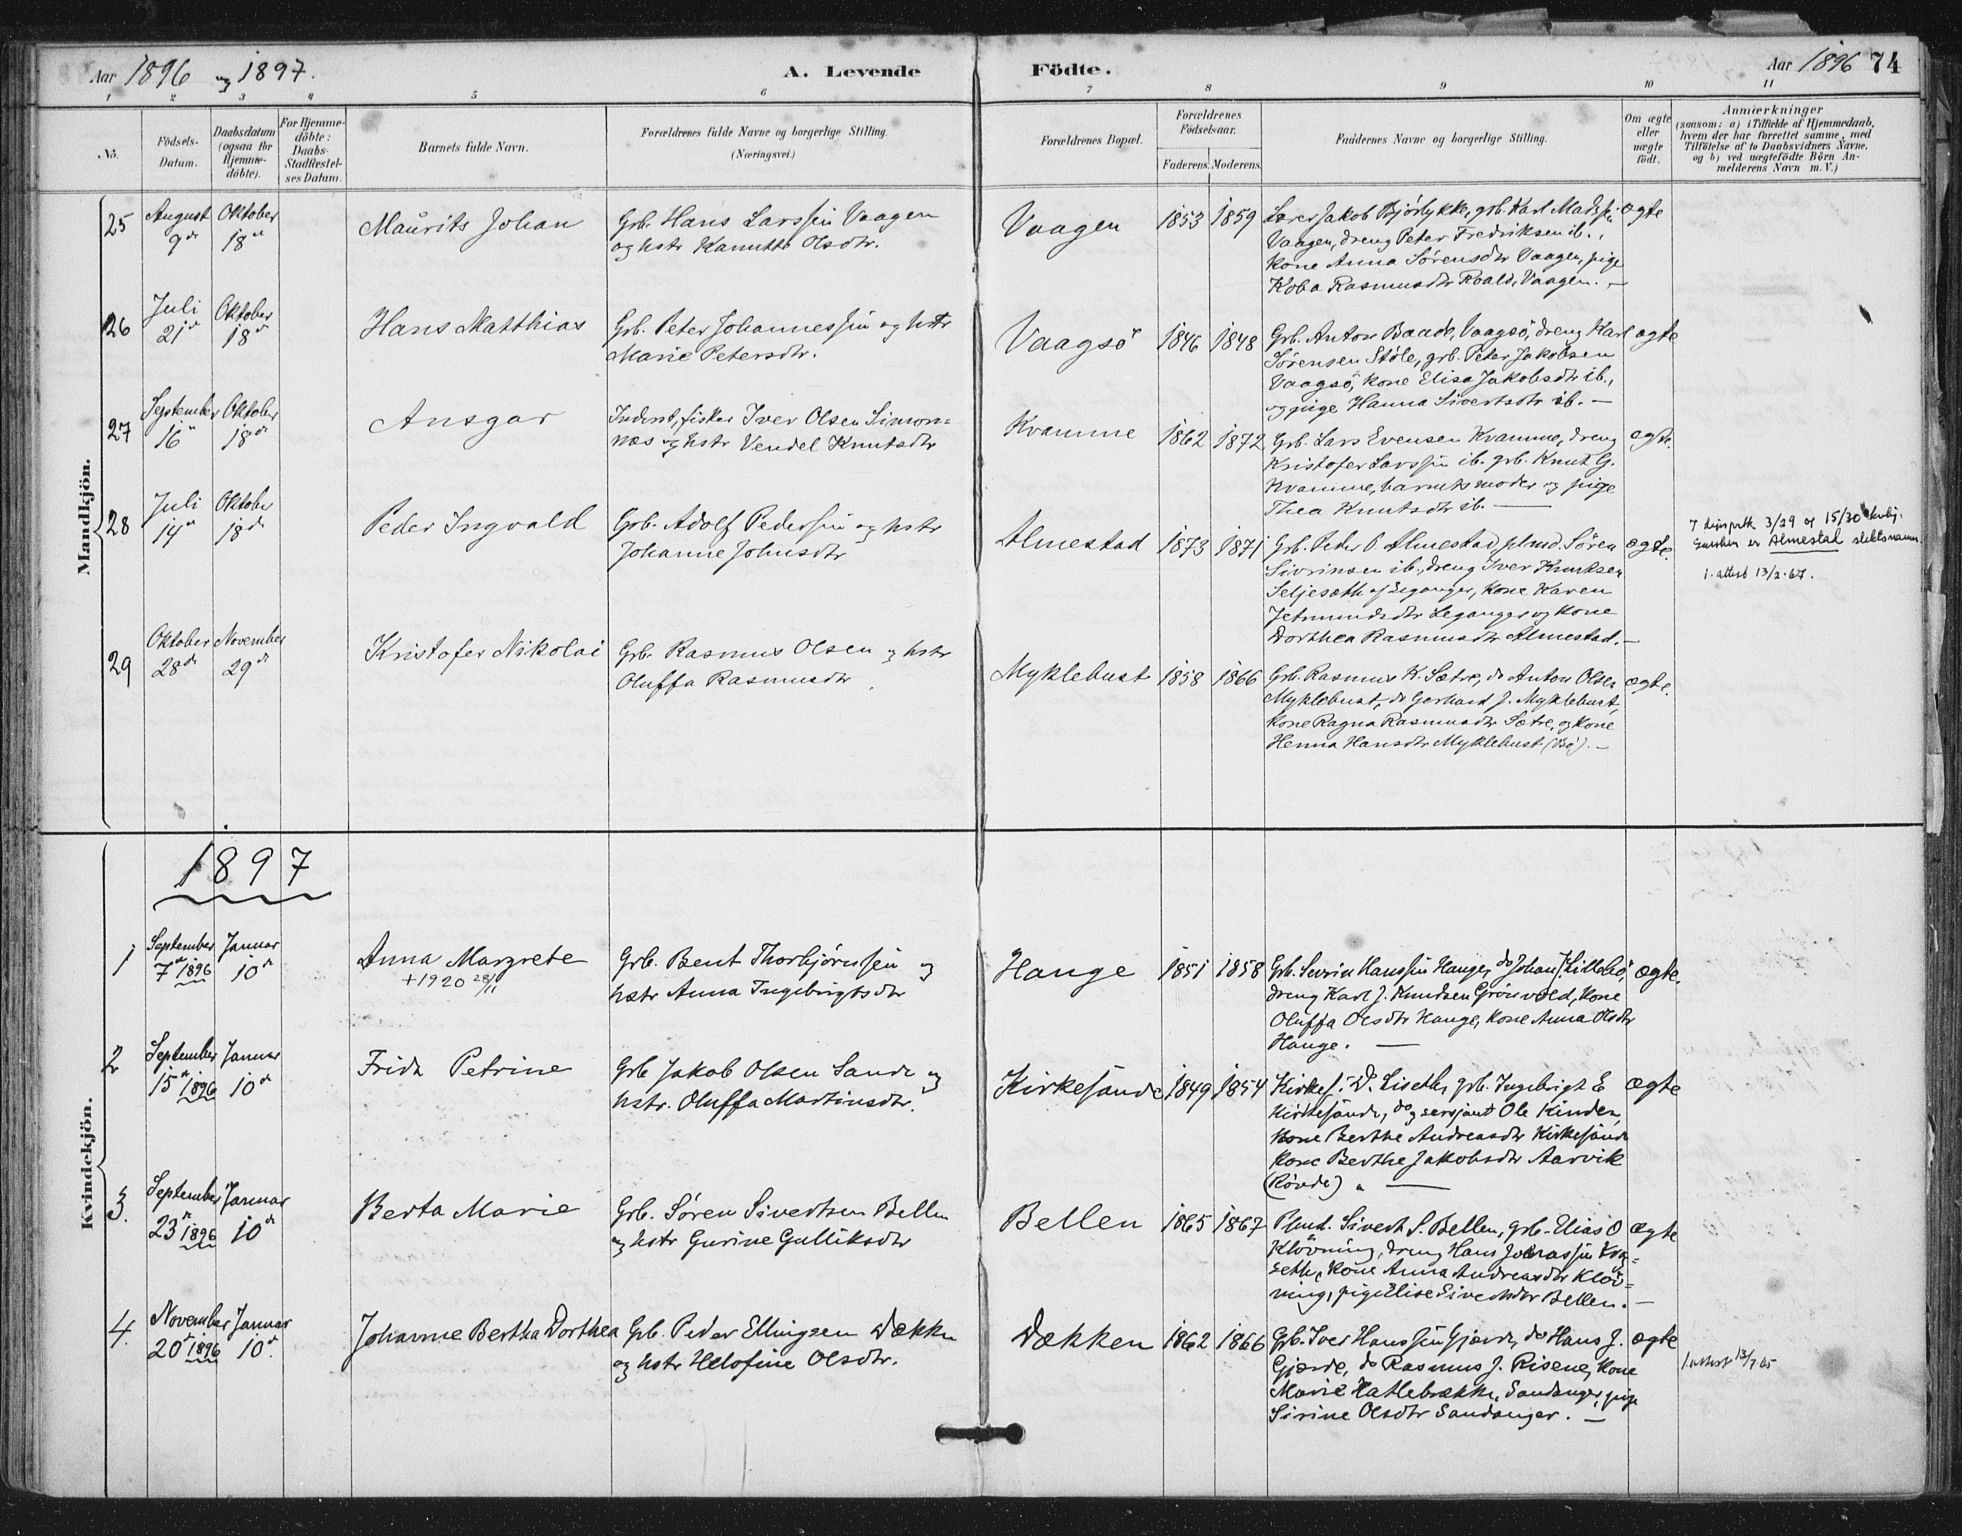 Aar 1896 og 1897.
A. Levende Födte.
Aar 1896 74
1 2 3 4 5 6 7 8 9 10 11
No.
Födsels-
Datum.
Daabsdatum
(ogsaa for
Hjemme-
döbte).
For Hjemme-
döbte:
Daabs-
Stadfæstel-
ses Datum.
Barnets fulde Navn.
Forældrenes fulde Navne og borgerlige Stilling.
(Næringsvei.)
Forældrenes Bopæl.
Forældrenes
Födselsaar.
Faderens. Moderens.
Faddernes Navne og borgerlige Stilling.
Om ægte
eller
uægte
födt.
Anmærkninger
(saasom: a) i Tilfælde af Hjemmedaab,
hvem der har forrettet samme, med
Tilföielse af to Daabsvidners Navne,
og b) ved uægtefödte Börn An-
melderens Navn m. V.)
Mandkjön.
25
August
9de
Oktober
18de
Maurits Johan
Grb. Hans Larssen Vaagen
og hstr Kanutte Olsdtr.
Vaagen
1853 1859
Lærer Jakob Bjørlykke, grb. Karl Madssen
Vaagen, dreng Peter Fredriksen ib.,
kone Anna Sørensdtr Vaagen, pige
Koba Rasmusdtr Roald, Vaagen. —
ægte
26
Juli
21de
Oktober
18de
Hans Matthias
Grb. Peter Johannessen og hstr
Marie Petersdtr.
Vaagsö
1846 1848
Grb. Anton Baade, Vaagsö, dreng Karl
Sørensen Støle, grb. Peter Jakobsen
Vaagsö, kone Elisa Jakobsdtr ib.,
og pige Hanna Sivertsdtr ib. —
ægte
27
September
16de
Oktober
18de
Ansgar
Inderst, fisker Iver Olsen Simon-
næs og hstr Vendel Knutsdtr
Kvamme
1862 1872
Grb. Lars Evensen Kvamme, dreng
Kristofer Larssen ib. grb. Knut G.
Kvamme, barnets moder og pige
Thea Knutsdtr ib. —
ægte.
28
Juli
14de
Oktober
18de
Peder Ingvald
Grb. Adolf Pederssen og hstr
Johanne Johnsdtr
Almestad
1873 1871
Grb. Peter P. Almestad, plmd. Søren
Sivrinsen ib., dreng Iver Knutsen
Seljesæth af Leganger, kone Karen
Jetmundsdtr Leganger og kone
Dorthea Rasmusdtr Almestad. —
ægte.
3/29 og 15/30
er Almestad slektsnamn.
1. attest 13/2-67.
29
Oktober
28de
November
29de
Kristofer Nikolai
Grb. Rasmus Olsen og hstr
Oluffa Rasmusdtr
Myklebust
1858 1866
Grb. Rasmus K. Sætre, do Anton Olsen
Myklebust, do Gerhard J. Myklebust,
kone Ragna Rasmusdtr Sætre, og kone
Henna Hansdtr Myklebust (Bø). —
ægte.
1897
Kvindekjön.
1
September
7de 1896
Januar
10de
Anna Margrete
+1920 28/11
Grb. Bent Thorbjørnsen og
hstr Anna Ingebrigtsdtr
Hauge
1851 1858
Grb. Sevrin Hanssen Hauge, do Johan J. Lillebø,
dreng Karl J. Knudsen Grönvold, kone
Oluffa Olsdtr Hauge, kone Anna Olsdtr
Hauge. —
ægte.
2
September
15de 1896
Januar
10de
Frida Petrine
Grb Jakob Olsen Sande og
hstr. Oluffa Martinsdtr.
Kirkesande
1849 1854
Kirkes. D. Liseth, grb. Ingebrigt E
Kirkesande, do og sersjant Ole Kinden,
kone Berthe Andreasdtr Kirkesande
kone Berthe Jakobsdtr Aarvik
(Røvde). —
ægte
3.
September
23de 1896
Januar
10de
Berta Marie
Grb. Søren Sivertsen Bellen
og hstr Gurine Gulliksdtr
Bellen
1865 1867
Plmd. Sivert S. Bellen, grb. Elias O
Klövning, dreng Hans Jonassen Krog-
seth, kone Anna Andreasdtr Klöv-
ning, pige Elise Sivertsdtr Bellen. —
ægte
4.
November
20de 1896
Januar
10de.
Johanne Bertha Dorthea
Grb. Peder Ellingsen Dekken
og hstr Helofine Olsdtr.
Dækken
1862 1866
Grb. Iver Hanssen Gjærde, do Hans J.
Gjærde, do Rasmus J. Risene, kone
Marie Hatlebrække, Sandanger, pige
Sirine Olsdtr Sandanger. —
ægte
1. attest 13/7 65